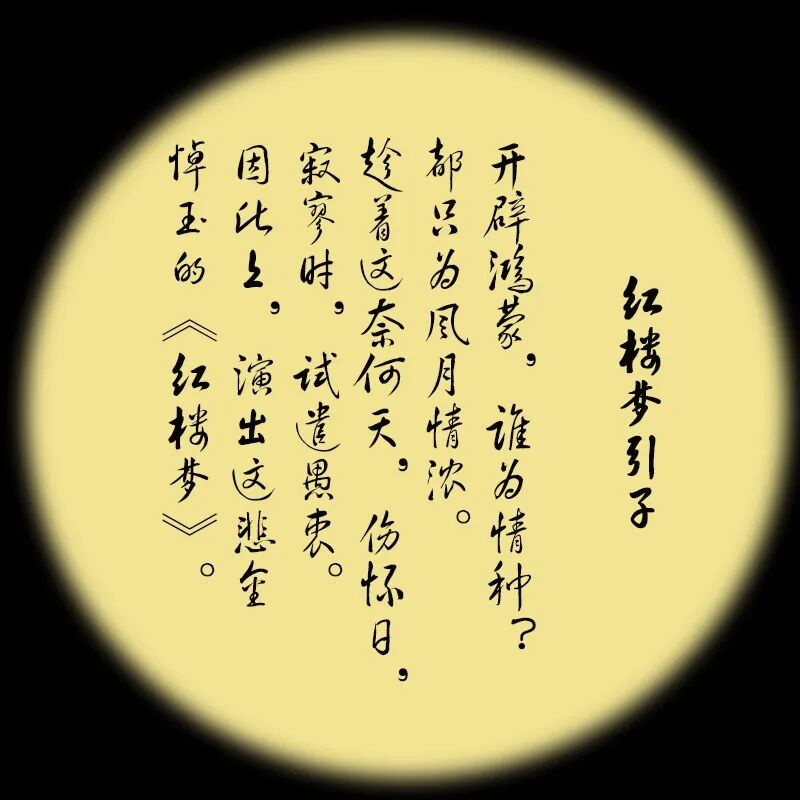 红楼梦引子
开辟鸿蒙，谁为情种？
都只为风月情浓。
趁着这奈何天，伤怀日，
寂寥时，试遣愚衷。
因此上，演出这悲金
悼玉的《红楼梦》。